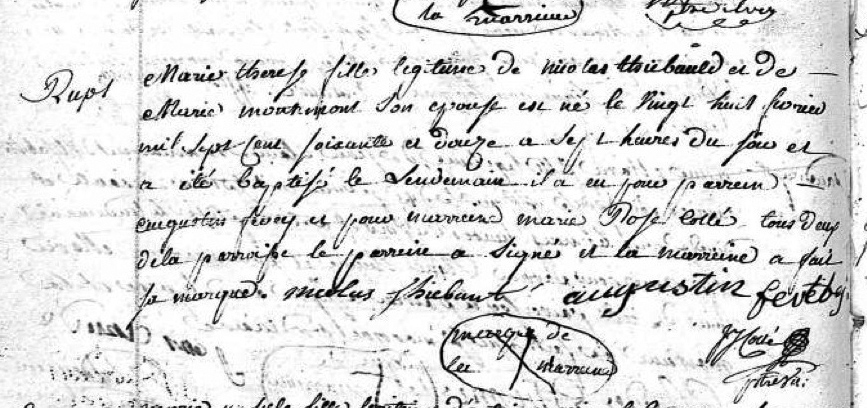 la marreine
Rupt
Marie therese fille legitime de nicolas thiebauld et de
Marie monmont son epouse est né le vingt huit fevrier
mil sept cent soixante et douze a sept heures du soir et
a été baptisé le lendemain il a eu pour parrein
augustin fevey et pour marreine marie Rose Collé tous deux
de la parroisse le parrein a signé et la marreine a fait
sa marque. nicolas thiebaut augustin
marque de
la marreine
Collé